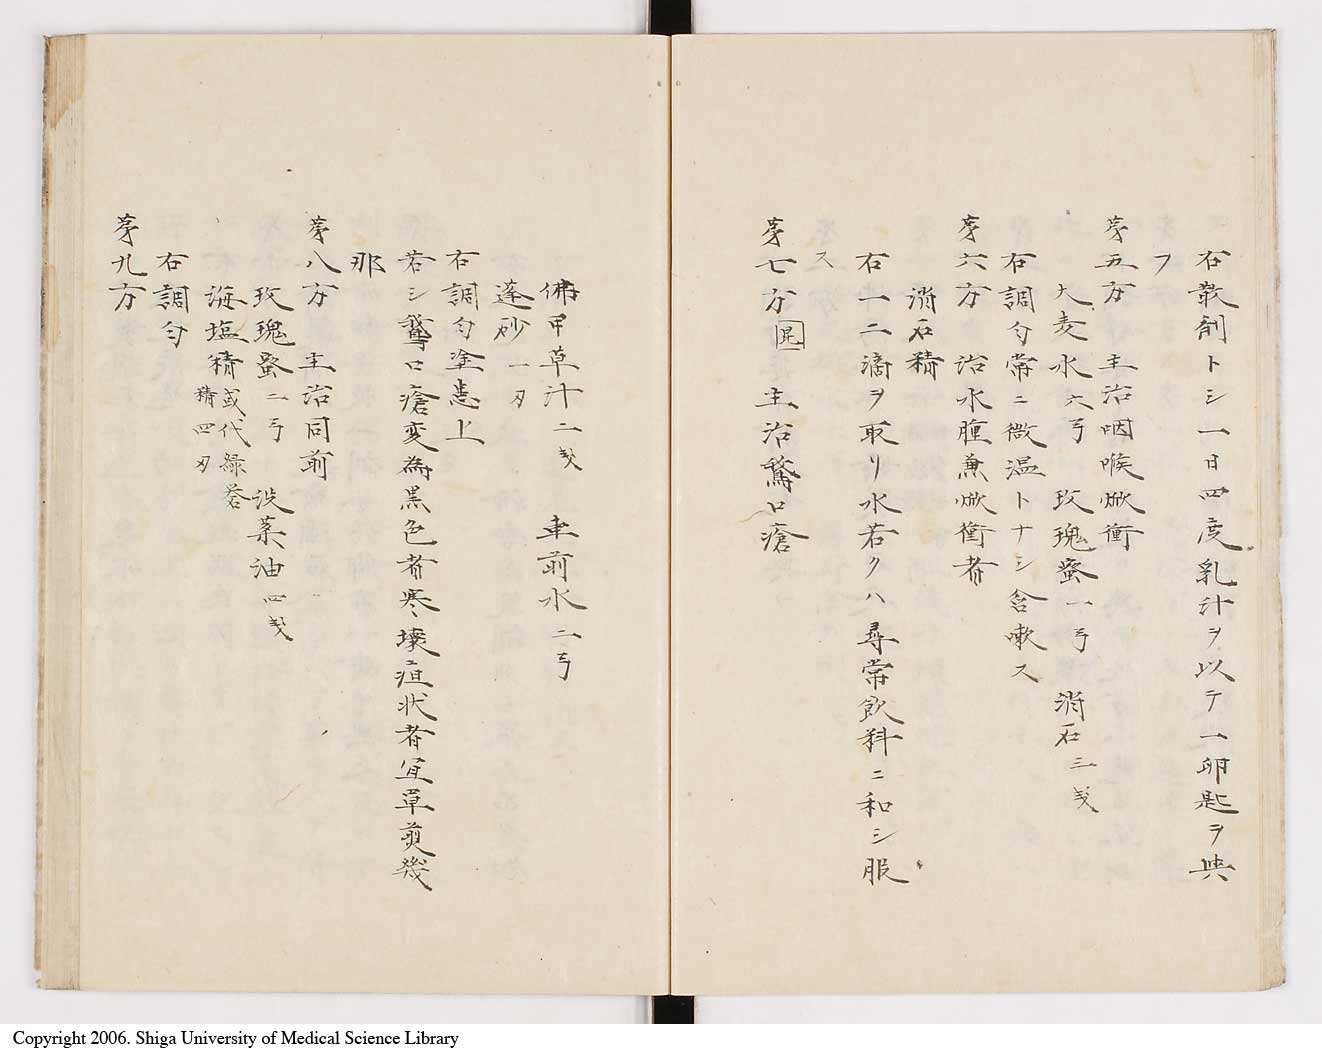 右散剤トシ一日四度乳汁ヲ以テ一卵匙ヲ與
フ
第五方 主治咽喉焮衝
大麦水 六弓 玫瑰蜜 一弓 消石 三戔
右調匀常ニ微温トナシ含嗽ス
第六方 治水腫兼焮衝者
消石精
右一二滴ヲ取リ水若クハ尋常飲料ニ和シ服
ス
第七方 主治鵞口瘡
佛甲草汁 二戔 車前水 二弓
蓬砂 一刄
右調匀塗患上
若シ鵞口瘡変為黒色者寒壊疽状者宜草煎幾
那
第八方 主治同前
玫瑰蜜 二弓 菜油 四戔
海塩精 或代緑礬精四刄
右調匀
第九方
Copyright 2006. Shiga University of Medical Science Library